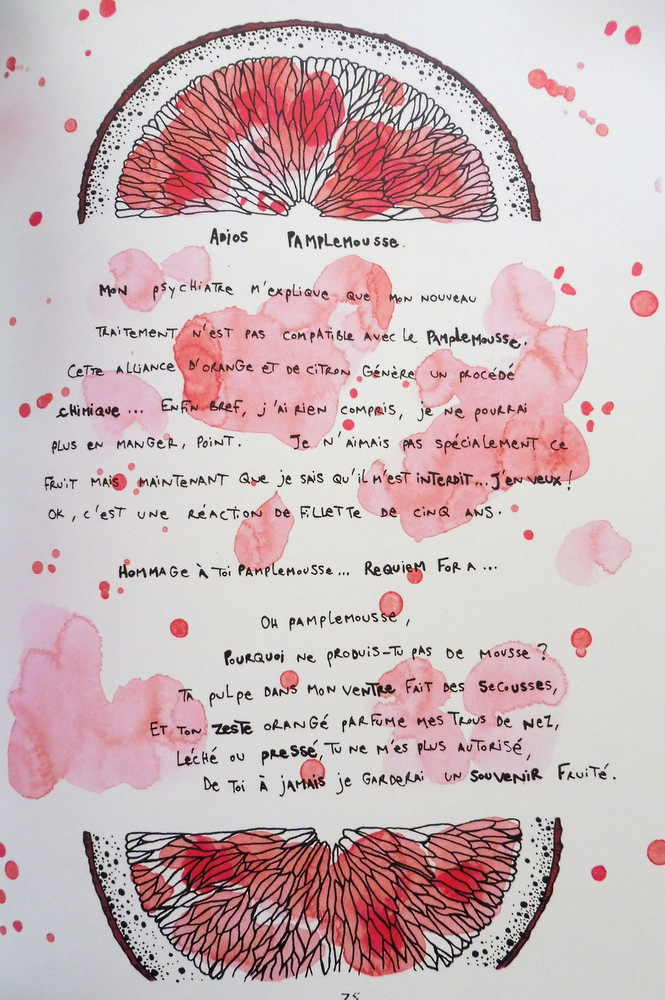 Adios Pamplemousse.
Mon psychiatre m'explique que mon nouveau
traitement n'est pas compatible avec le pamplemousse.
Cette alliance d'orange et de citron génère un procédé
chimique... Enfin bref, j'ai rien compris, je ne pourrai
plus en manger, point. Je n'aimais pas spécialement ce
fruit mais maintenant que je sais qu'il m'est interdit... j'en veux !
Ok, c'est une réaction de fillette de cinq ans.
Hommage à toi pamplemousse... Requiem for a ...
Oh pamplemousse,
Pourquoi ne produis-tu pas de mousse ?
Ta pulpe dans mon ventre fait des secousses,
Et ton zeste orangé parfume mes trous de nez,
Léché ou pressé, tu ne m'es plus autorisé,
De toi à jamais je garderai un souvenir fruité.
75